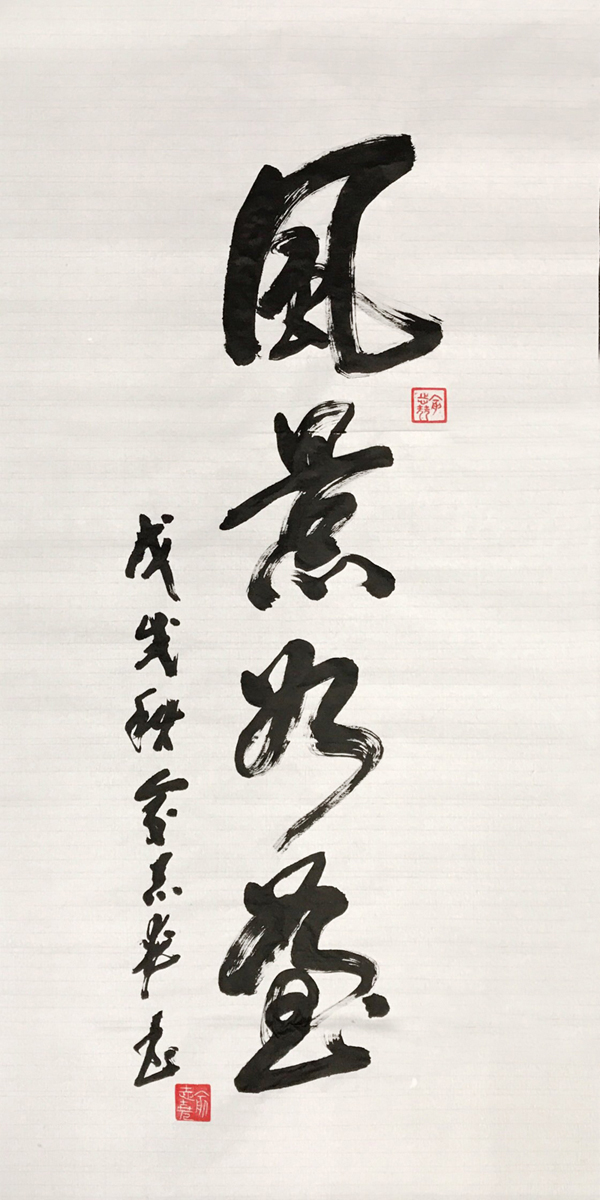 風景如畫
戊戌秋俞志華書